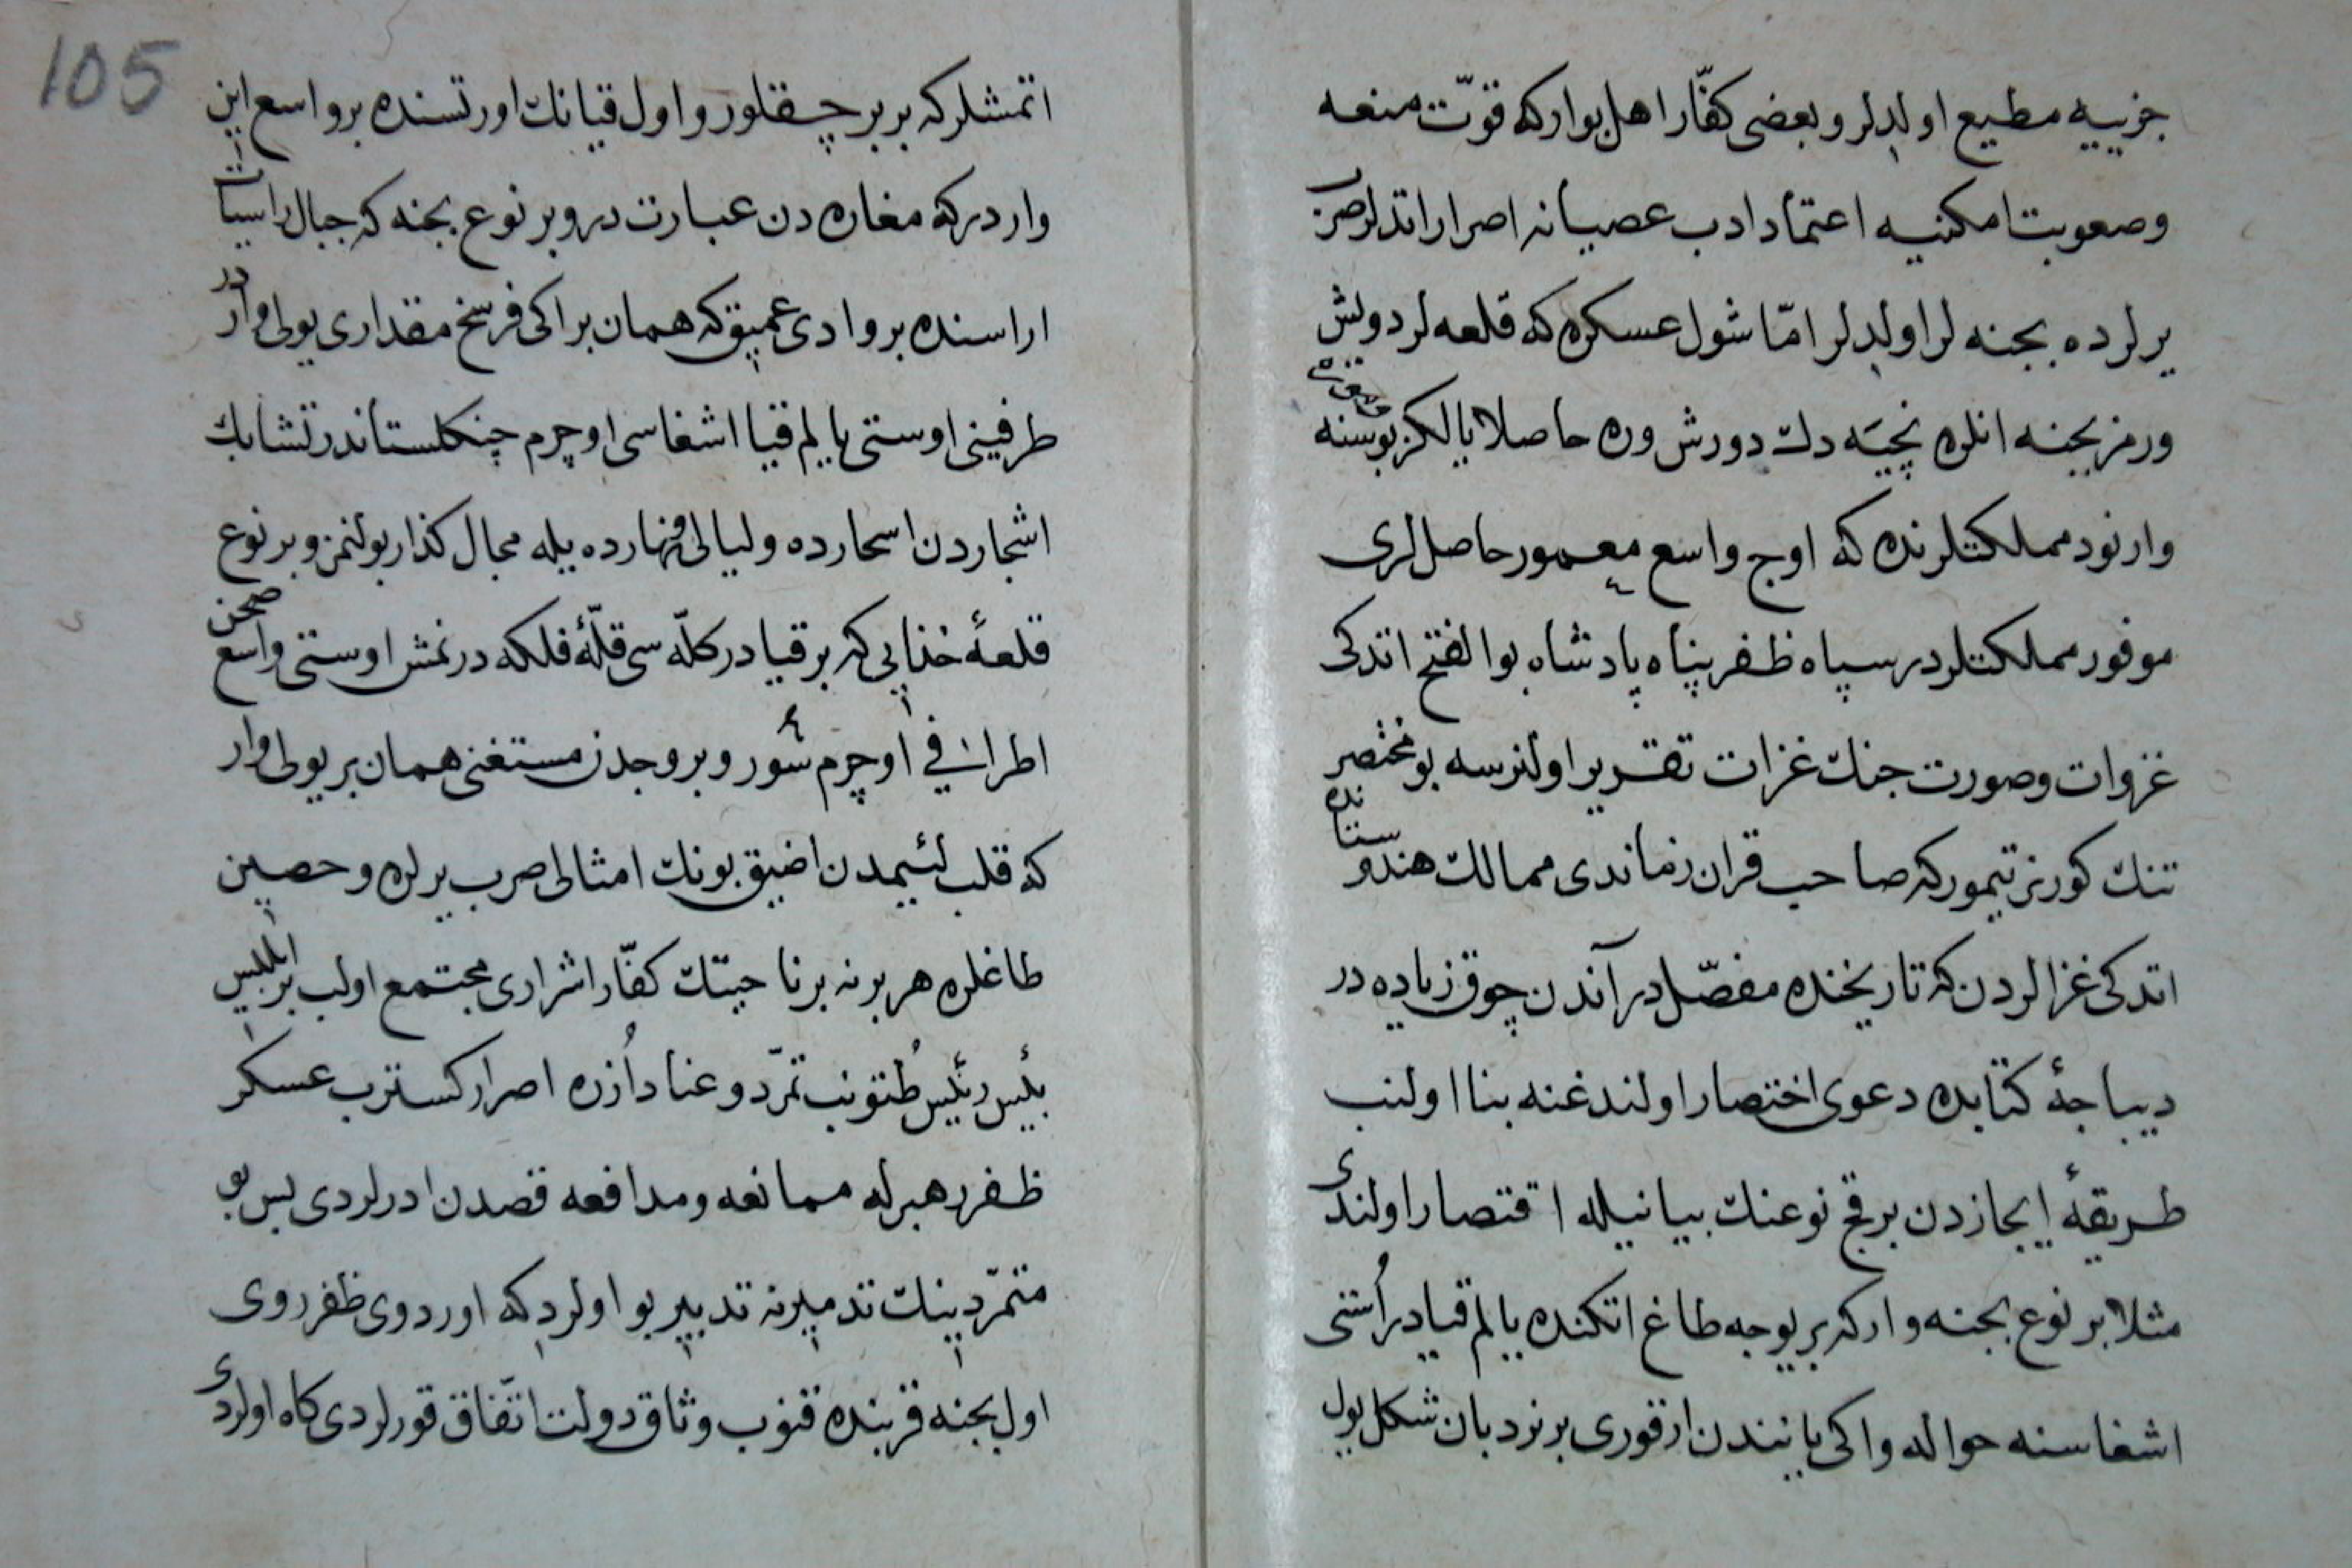 جزییه مطیع اولدلر و بعضی کفّار اهل بوار که قوّت منعه
وصعوبت امکنییه اعتماد ادب عصیانه اصرار اتدلر صرب
یرلرده بجنه لر اولدلر امّا شول عسکره که قلعه لر دولش
ورمز بجنه انلره نجیّه دك دورش وره حاصلا یالکز بوسنه
وارنود مملکتلرنده که اوج واسع معمور حاصللری
موفور مملکتلردر سپاه ظفر پناه پادشاه بوالفتح اتدکی
غزوات وصورت جنك غزات تقریر اولنرسه بو مختصر
تنك کورنر تیمور که صاحب قران زماندی ممالك هندوستانده
اتدکی غزالردن که تاریخنده مفصّلدر آندن چوق زیاده در
دیباجهٔ کتابده دعوی اختصار اولندغنه بنا اولنب
طریقهٔ ایجازدن برقج نوعنك بیانیله اقتصار اولندی
مثلا بر نوع بجنه وار که بر یوجه طاغ اتکنده یالم قیادر أستی
اشغاسنه حواله واکی یانندن ارقوری بر نردبان شکل یول
105
اتمشلر که بربر چقلور و اول قیانك اورتسنده بر واسع این
واردر که مغاره دن عبارت در و بر نوع بجنه که جبال راسیات
اراسنده بر وادی عمیق که همان بر اکی فرسخ مقداری یولی واردر
طرفینی اوستی یالم قیا اشغاسی اوچرم جنکلستاندر تشابك
اشجاردن اسحارده ولیالی و نهارده بیله مجال کذار بولنمز و بر نوع
قلعهٔ خذایی که بر قیادر کلّه سی قلّهٔ فلکه درنمش اوستی واسع صحن
اطرافی اوچرم سور و بروجدن مستغنی همان بر یولی وار
که قلب لئیمدن اضیق بونك امثالی صرب یرلره و حصین
طاغلره هر برنه بر ناحیتك کفّار اشراری مجتمع اولب بر ابلیس
بلیس رئلیس طتونب تمرّد و عناد أزره اصرار کسترب عسکر
ظفر رهبرله ممانعه ومدافعه قصدن ادرلردی بس بو
متمرّدینك تدمیرنه تدبیر بو اولرد که اوردوی ظفر روی
اول بجنه قربنده قنوب وثاق دولت اتّفاق قورلردی کاه اولردی